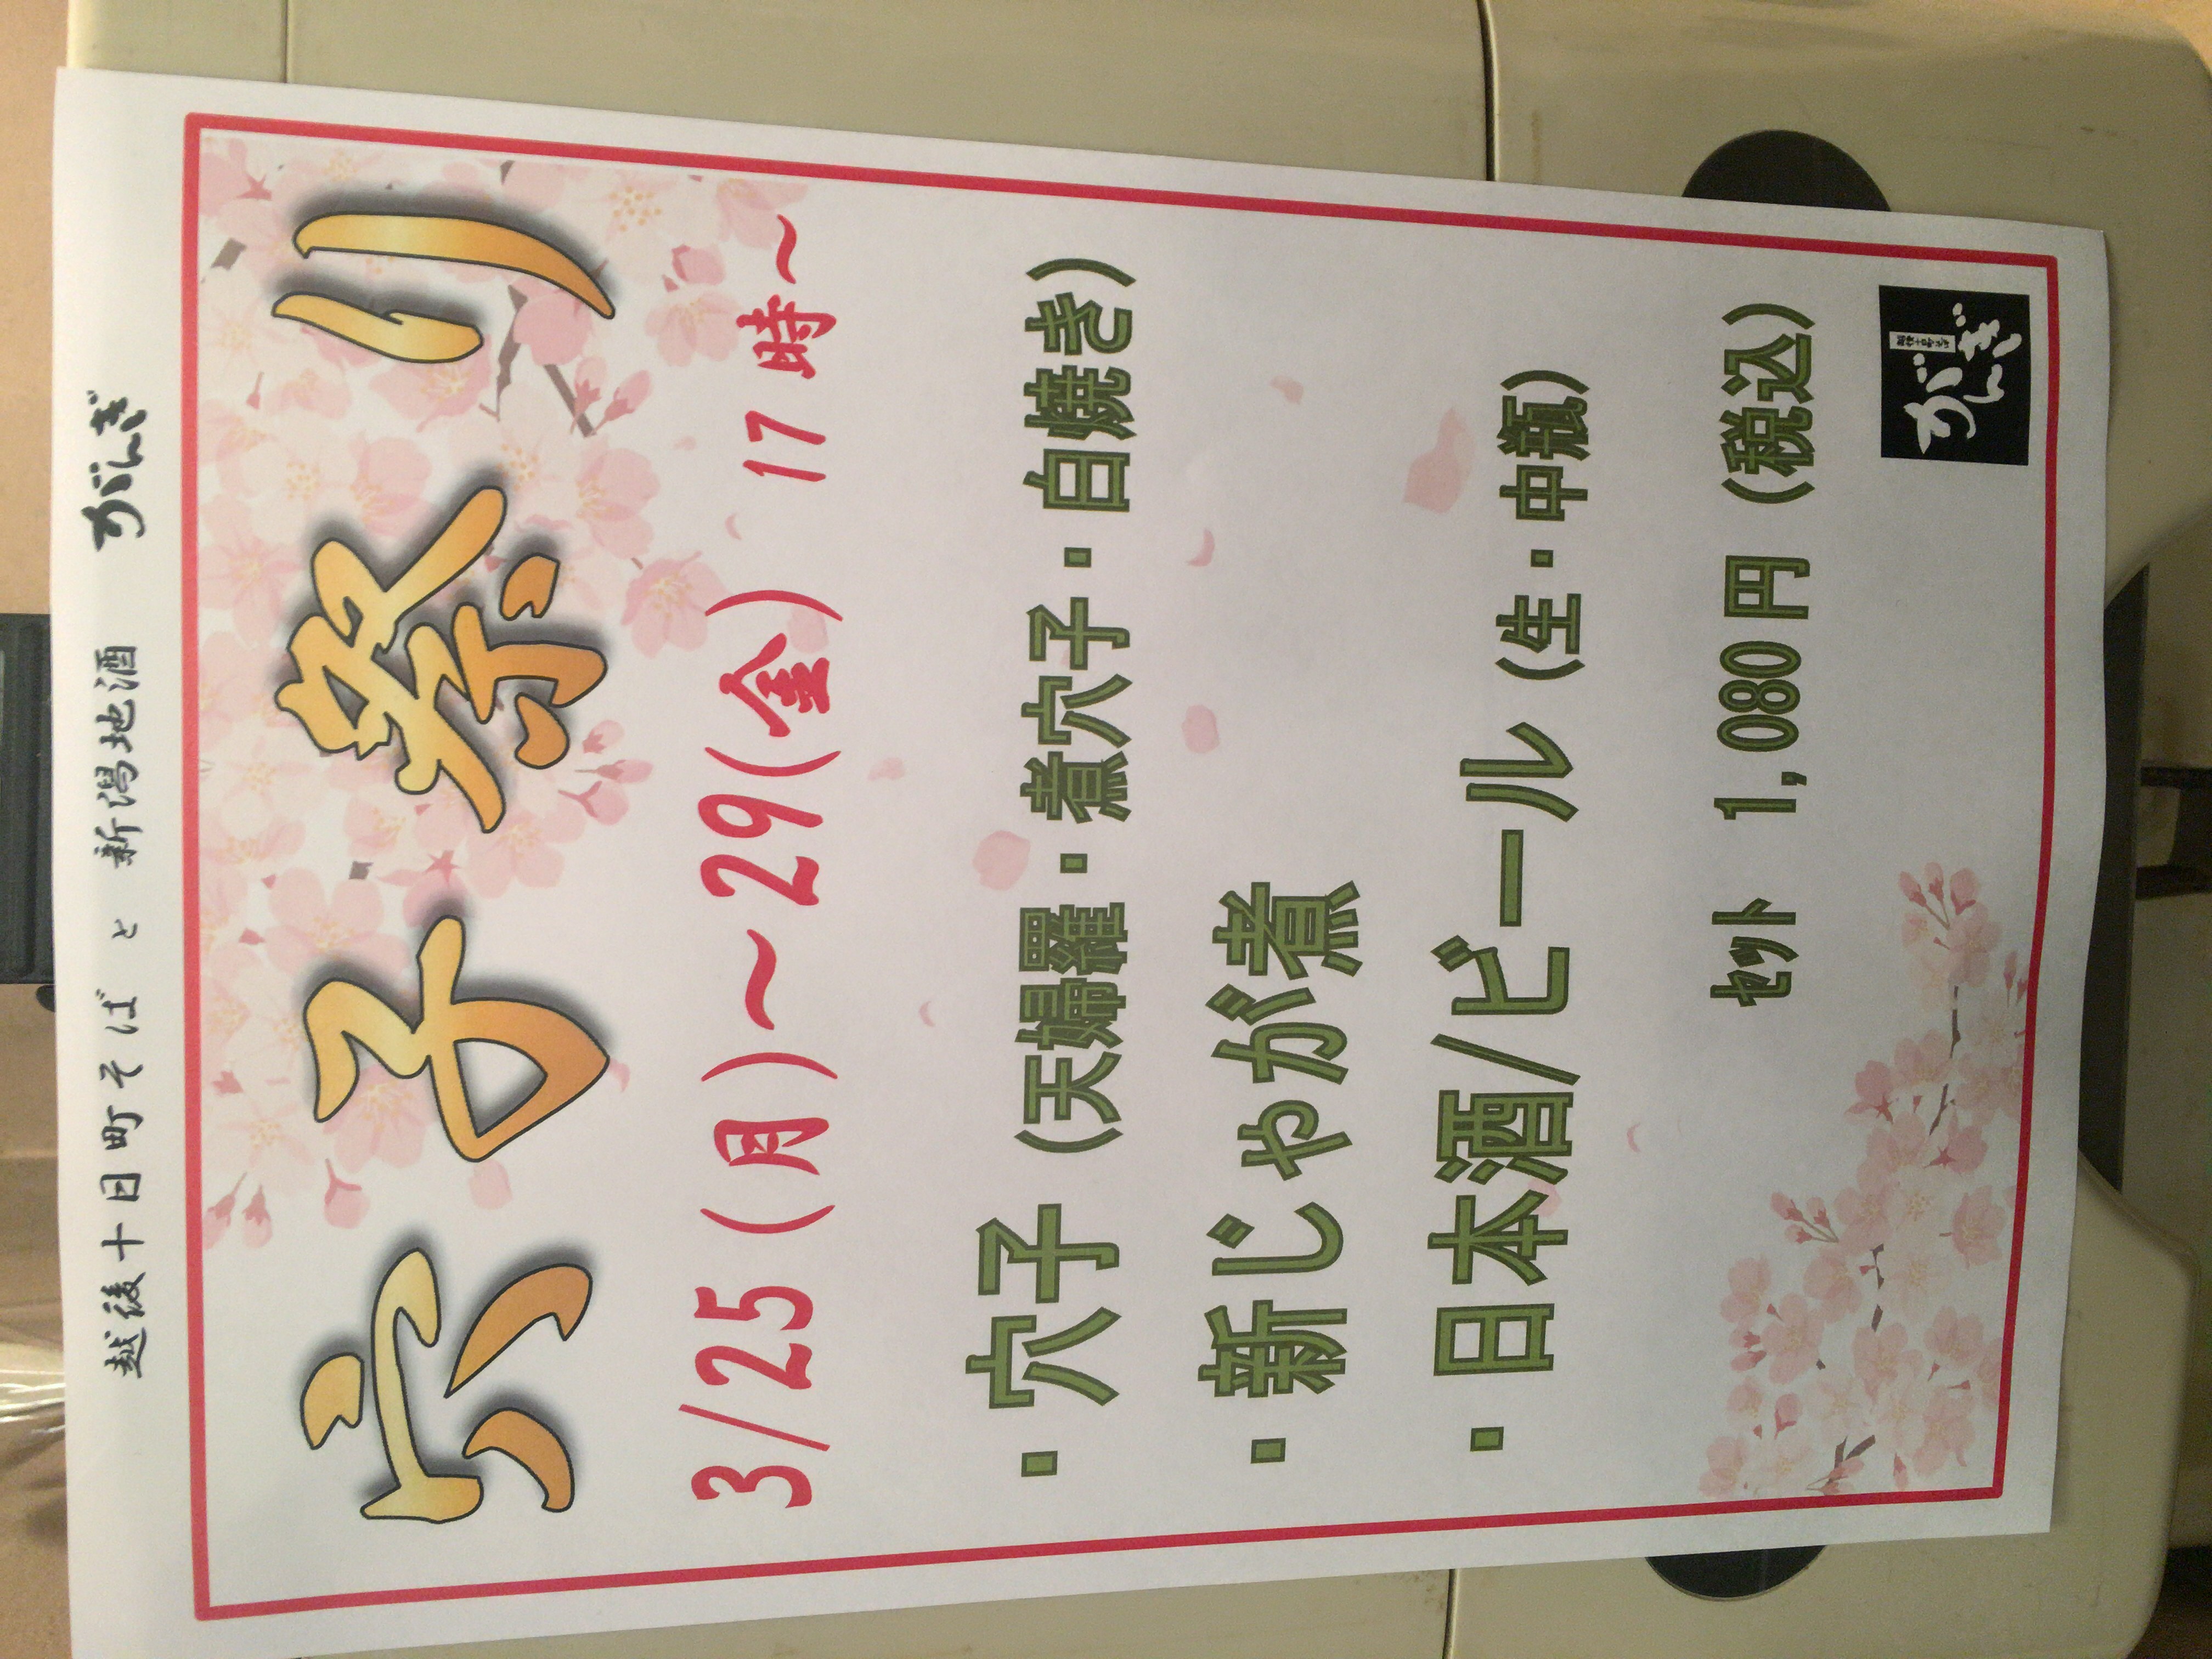 越後十日町そば と 新潟地酒 がんぎ
穴子祭り
3/25(月)～29(金) 17時～
・穴子(天婦羅・煮穴子・白焼き)
・新じゃが煮
・日本酒/ビール(生・中瓶)
ｾｯﾄ 1,080円(税込)
がんぎ